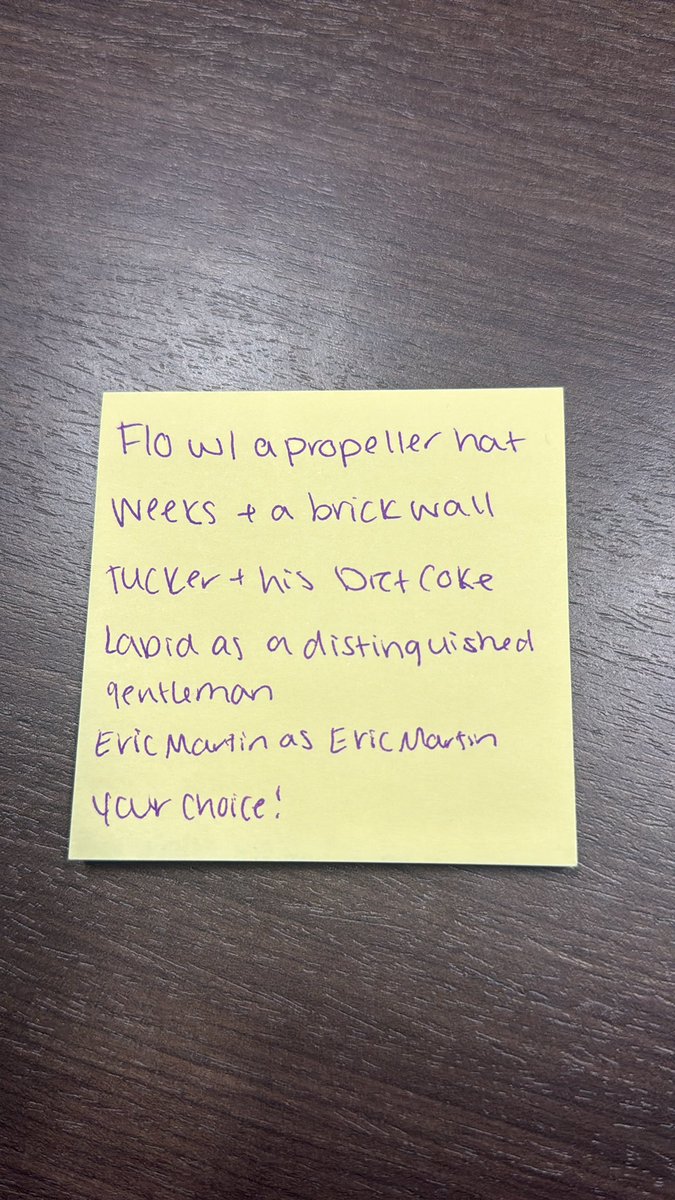 Flo w/ a propeller hat
Weeks + a brick wall
Tucker + his Diet Coke
Lapid as a distinguished
gentleman
Eric Martin as Eric Martin
Your choice!